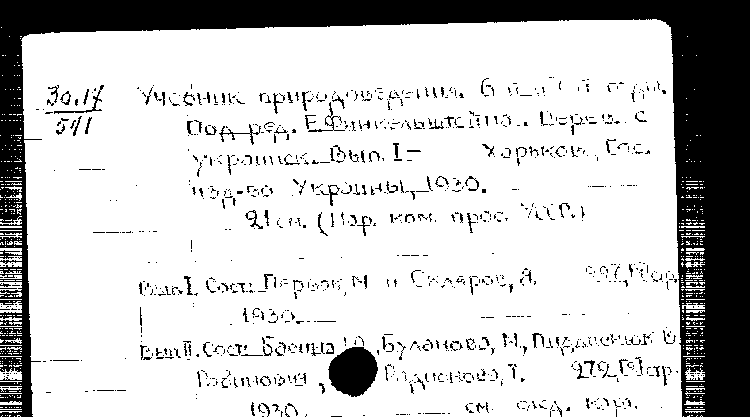 30.17
541
Учебник природоведения. 6
Под ред. Е. Финкельштейна. Перев. с
украинск. Вып. I– Харьков, Гос.
изд-во Украины, 1930.
21 см. (Нар. ком. прос. УССР.)
Вып I. Сост: Первов, М и Скляров, Я. стр
1930.
Вып II. Сост: Буланова, М,
Рабинович, Радионова, Т. 272, стр.
1930. см. след. карт.